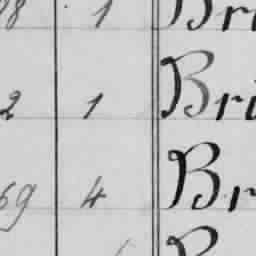 98 1 Bri
2 1 Bri
69 4 Br